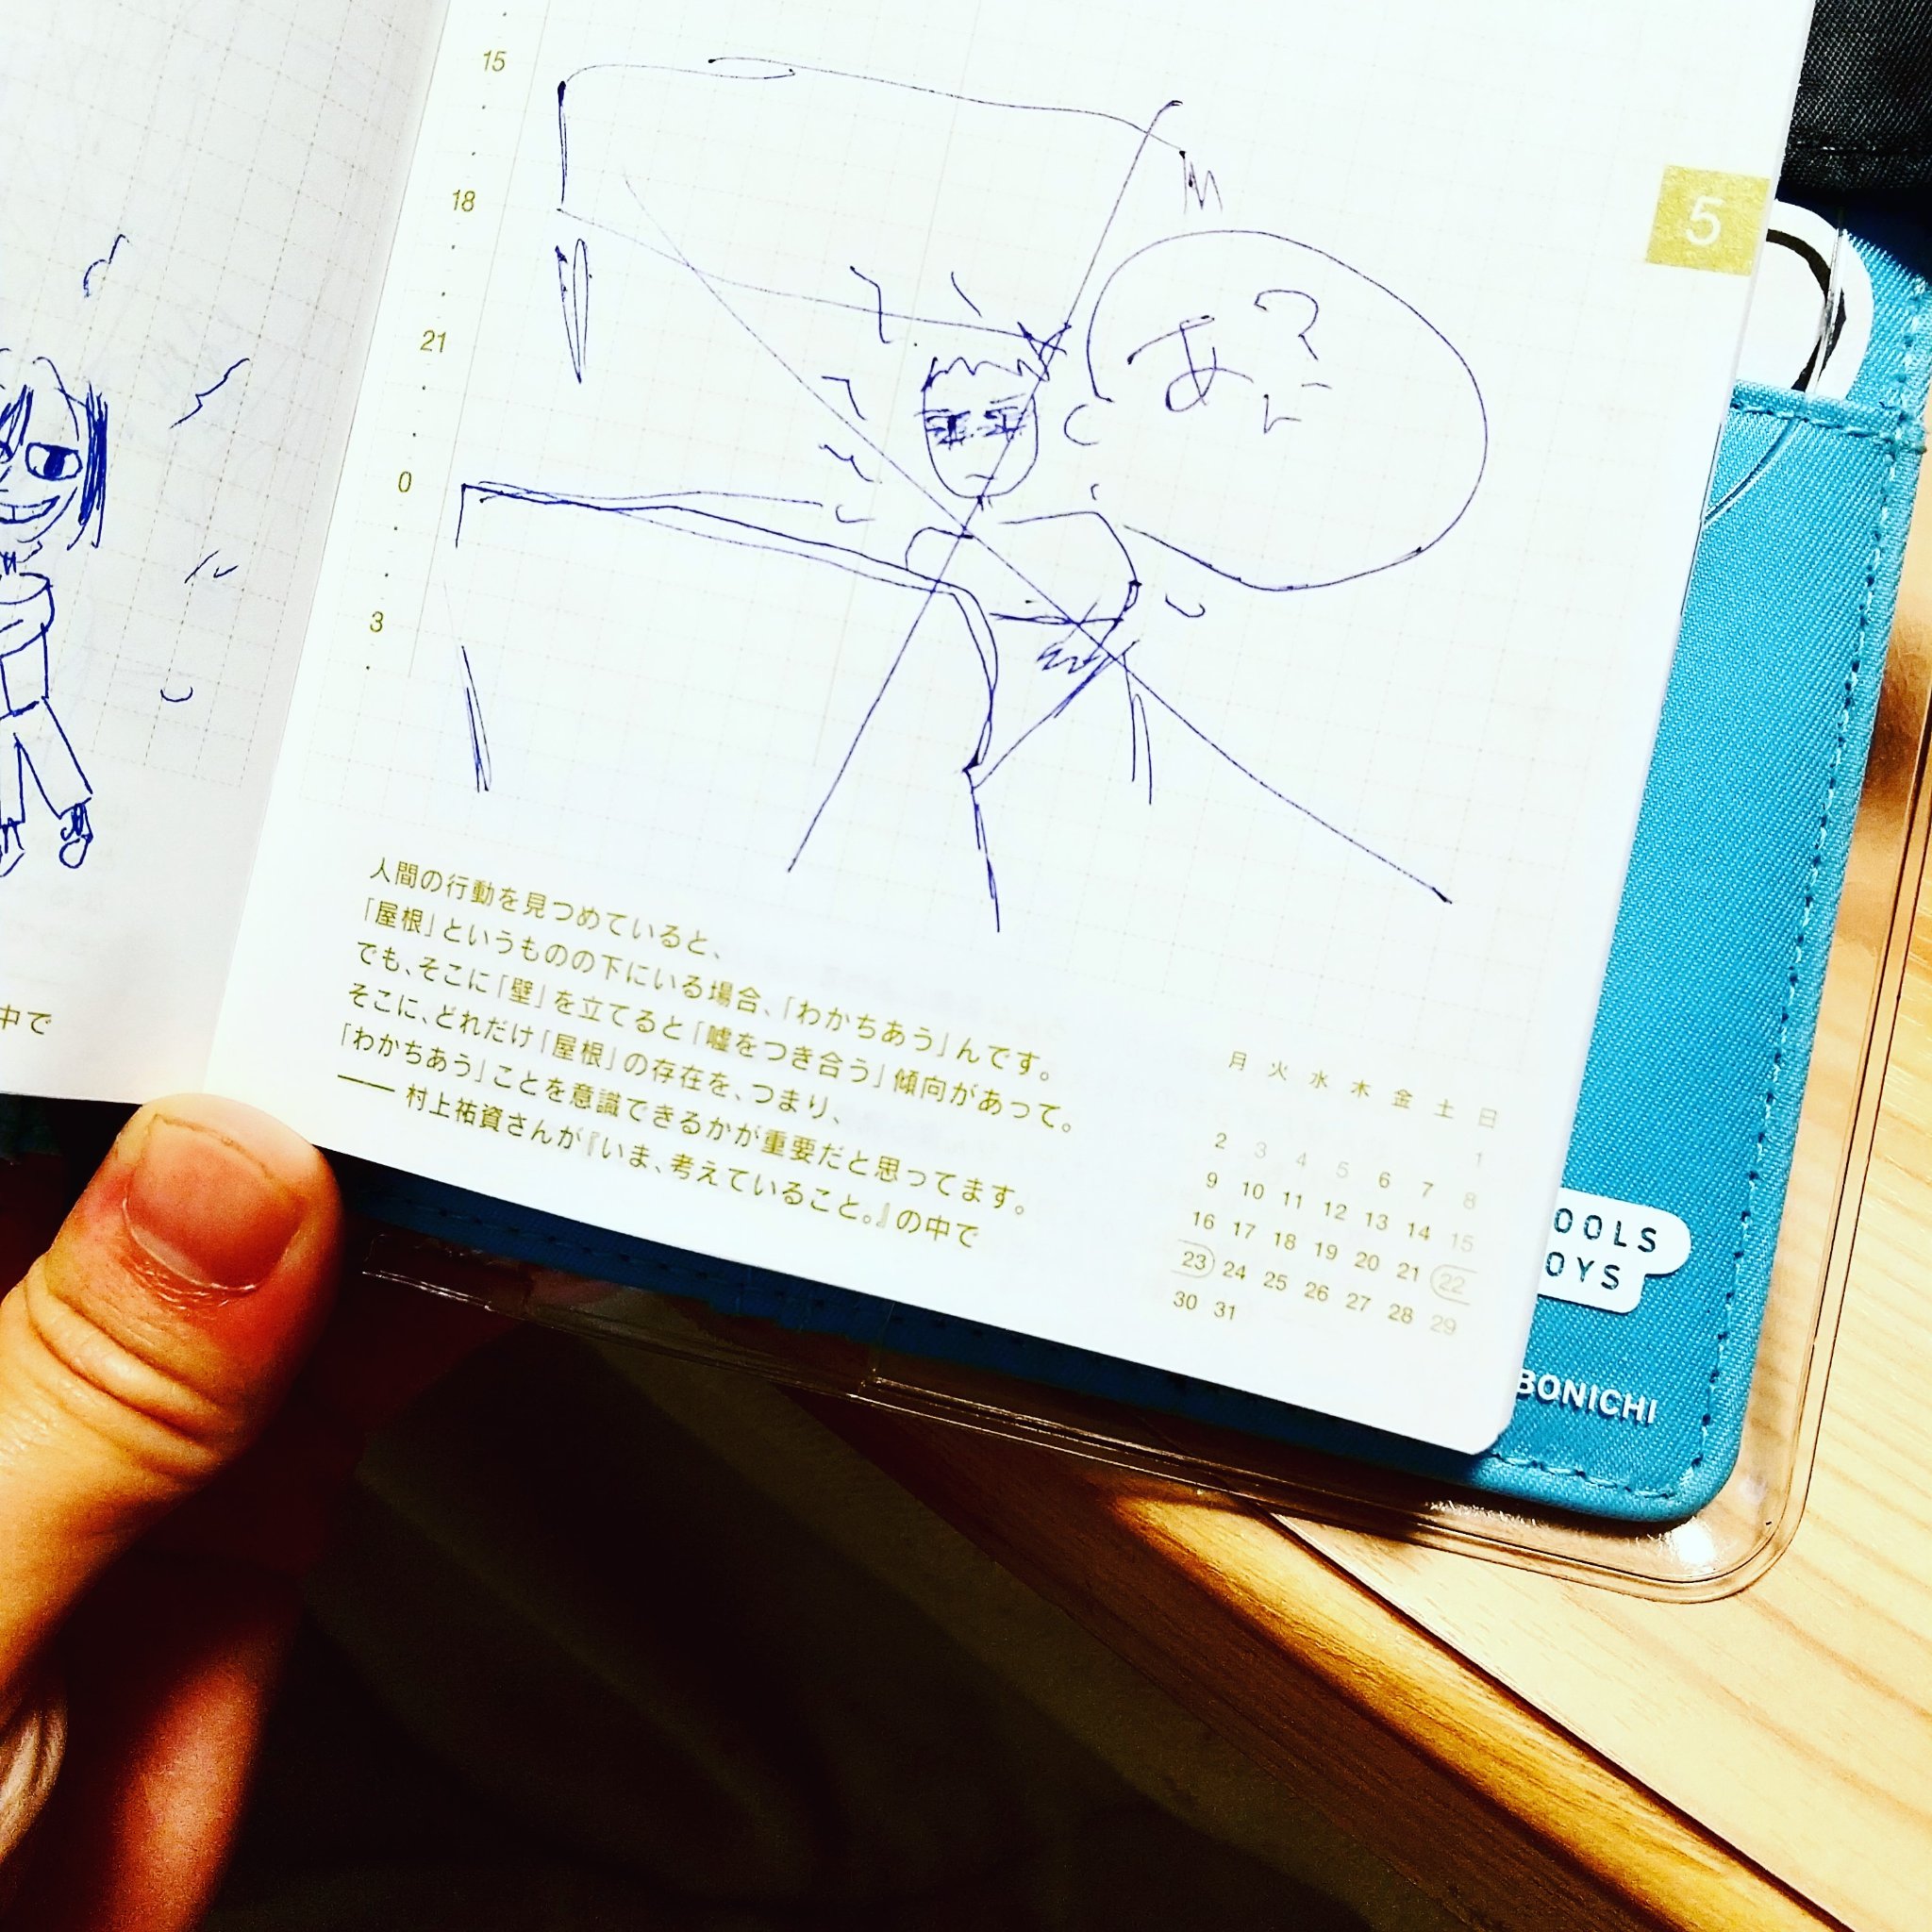 15
18
21
0
3
5
あ?
人間の行動を見つめていると、
「屋根」というものの下にいる場合、「わかちあう」んです。
でも、そこに「壁」を立てると「嘘をつき合う」傾向があって。
そこに、どれだけ「屋根」の存在を、つまり、
「わかちあう」ことを意識できるかが重要だと思ってます。
—— 村上祐資さんが『いま、考えていること。』の中で
中で
月 火 水 木 金 土 日
1
2 3 4 5 6 7 8
9 10 11 12 13 14 15
16 17 18 19 20 21 22
23 24 25 26 27 28 29
30 31
OOLS
OYS
BONICHI